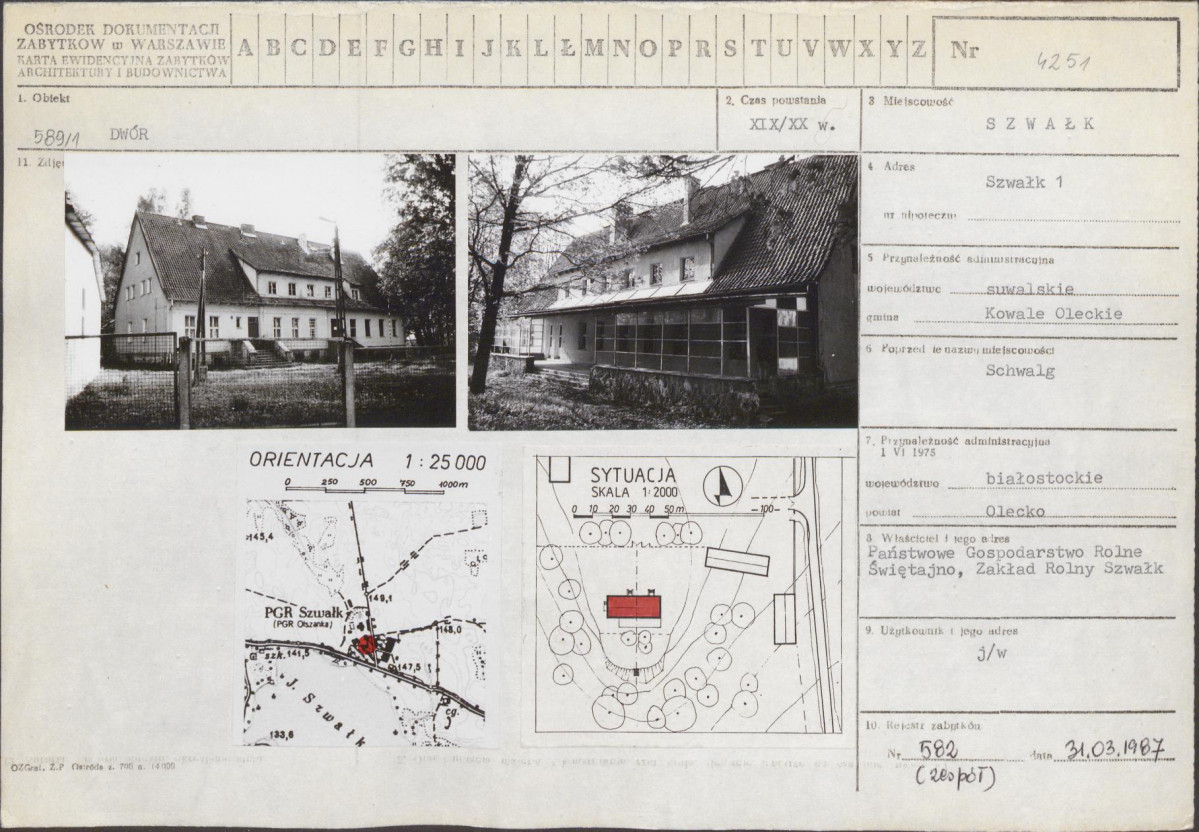 OŚRODEK DOKUMENTACJI
ZABYTKÓW w WARSZAWIE
KARTA EWIDENCYJNA ZABYTKÓW
ARCHITEKTURY I BUDOWNICTWA
A B C D E F G H I J K L Ł M N O P R S T U V W X Y Z
Nr 4251
1. Obiekt
589/1 DWÓR
2. Czas powstania
XIX/XX w.
3 Miejscowość
SZWAŁK
11. Zdję
4 Adres
Szwałk 1
nr hipoteczny
5 Przynależność administracyjna
województwo suwalskie
gmina Kowale Oleckie
6 Poprzednie nazwy miejscowości
Schwalg
7. Przynależność administracyjna
1 VI 1975
województwo białostockie
powiat Olecko
8 Właściciel i jego adres
Państwowe Gospodarstwo Rolne
Świętajno, Zakład Rolny Szwałk
9. Użytkownik i jego adres
j/w
10. Rejestr zabytków
Nr 582 data 31.03.1987
(zespół)
ORIENTACJA 1:25 000
0 250 500 750 1000m
145,4
149,1
PGR Szwałk
(PGR Olszanka)
145,0
szk. 141,5
147,5
J. Szwałk
cg.
133,6
SYTUACJA
SKALA 1:2000
0 10 20 30 40 50m 100
OZGraf. Z.P Ostróda z. 706 n. 14 000